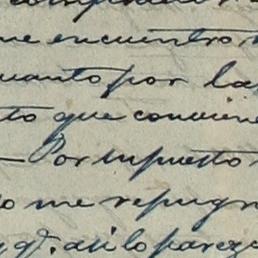 me encuentro
cuanto por la
to que convien
— Por supuesto
o me repugn
qd. asi lo parez